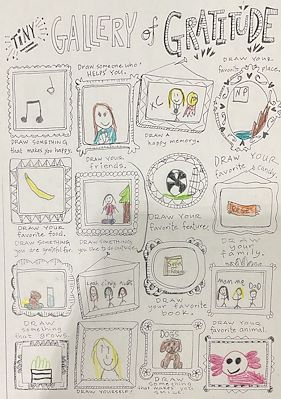 TINY GALLERY of GRATITUDE
DRAW SOMEONE WHO
HELPS YOU.
DRAW YOUR
favorite place.
DRAW SOMETHING
that makes you happy.
DRAW A
happy memory.
DRAW YOUR
friends.
DRAW YOUR
favorite candy.
DRAW YOUR
favorite food.
DRAW YOUR
favorite feature.
DRAW SOMETHING
you are grateful for.
DRAW SOMETHING
you like to do outside.
DRAW
your
family.
Mom me DAD
DRAW
your favorite
book.
DRAW
something
that grows.
DOGS
DRAW
your favorite animal.
DRAW YOURSELF!
DRAW
something
that makes you
smile